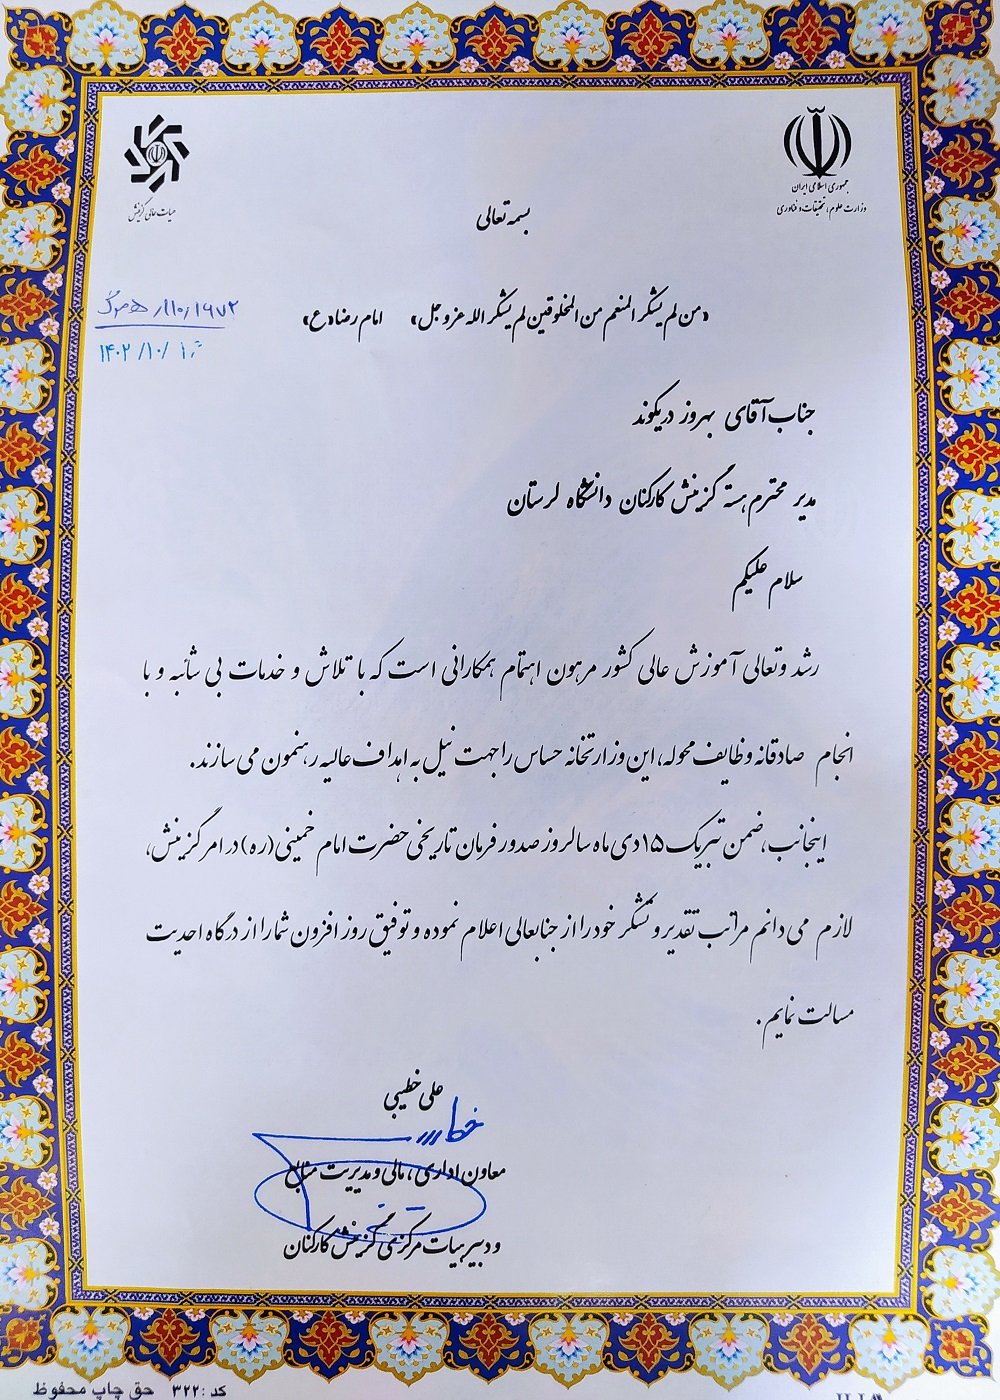 جمهوری اسلامی ایران
وزارت علوم، تحقیقات و فناوری
هیات عالی گزینش
بسمه تعالی
«من لم یشکر المنعم من المخلوقین لم یشکر الله عزوجل» امام رضا(ع)
۱۴۰۲/۱۰/
جناب آقای بهروز دریکوند
مدیر محترم هسته گزینش کارکنان دانشگاه لرستان
سلام علیکم
رشد وتعالی آموزش عالی کشور مرهون اهتمام همکارانی است که با تلاش و خدمات بی شائبه و با
انجام صادقانه وظایف محوله، این وزارتخانه حساس را جهت نیل به اهداف عالیه رهنمون می سازند.
اینجانب، ضمن تبریک ۱۵ دی ماه سالروز صدور فرمان تاریخی حضرت امام خمینی (ره) در امر گزینش،
لازم می دانم مراتب تقدیر و تشکر خود را از جنابعالی اعلام نموده و توفیق روز افزون شما را از درگاه احدیت
مسالت نمایم.
علی خطیبی
معاون اداری، مالی و مدیریت منابع
و دبیر هیات مرکزی گزینش کارکنان
کد: ۳۲۲ حق چاپ محفوظ